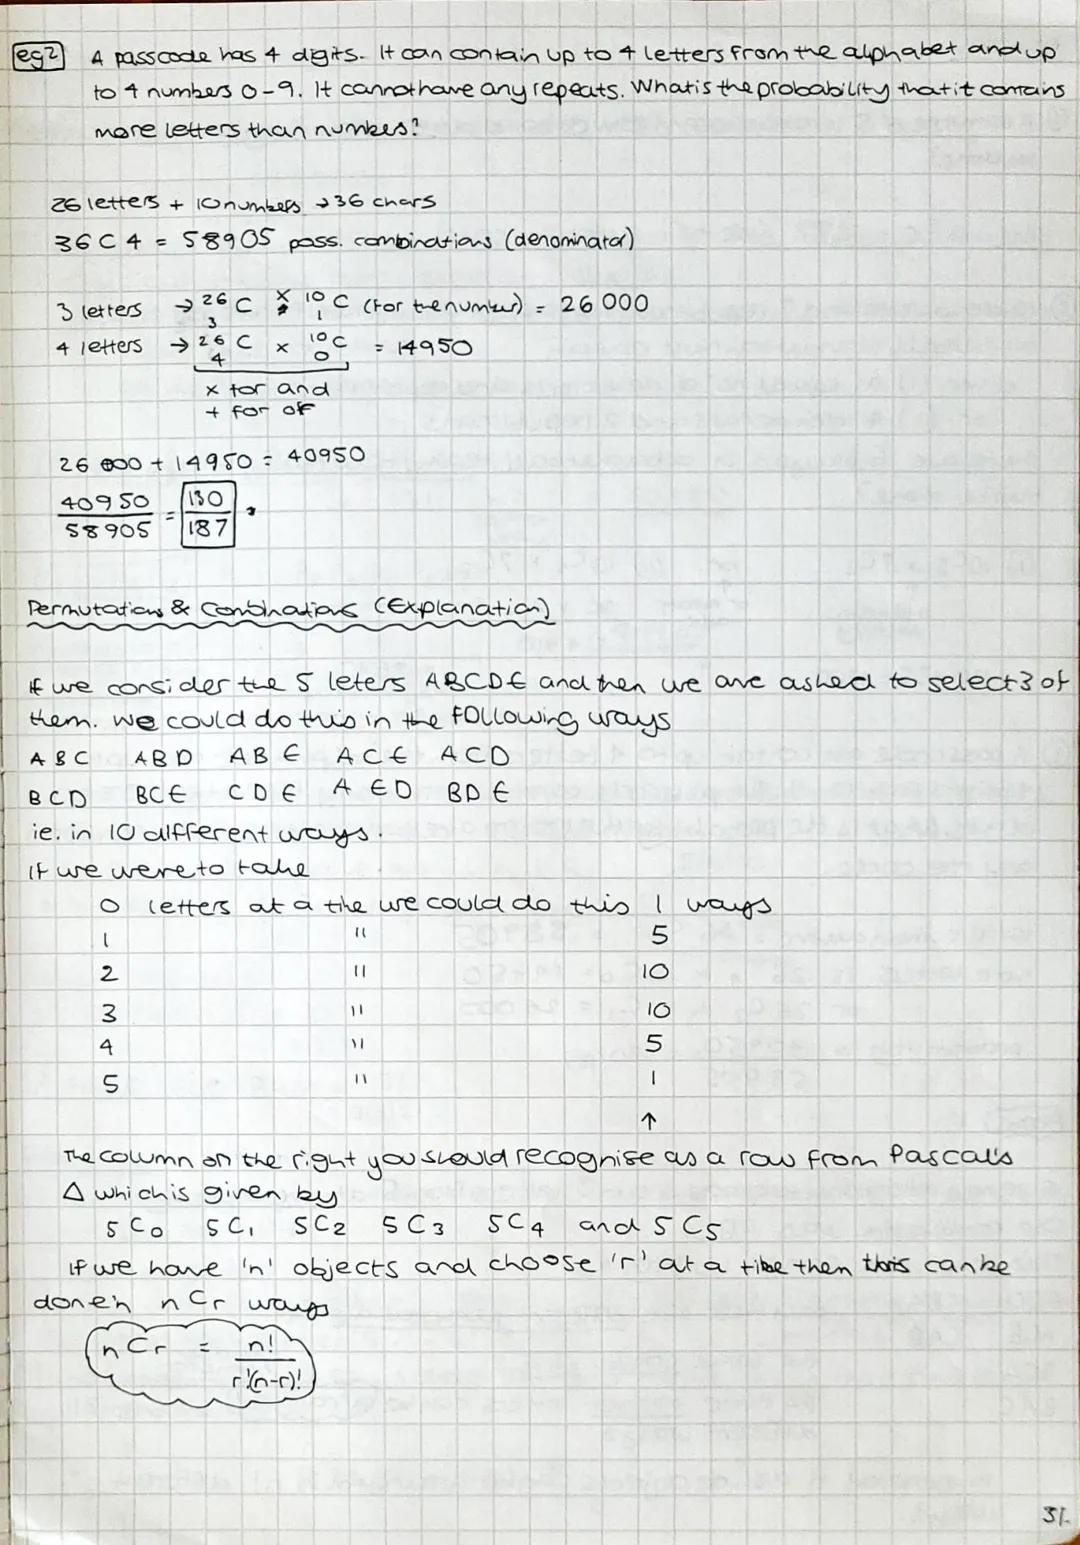 eg2 A passcode has 4 digits. It can contain up to 4 letters from the alphabet and up
to 4 numbers 0-9. It cannot have any repeats. What is the probability that it contains
more letters than numbers?
26 letters + 10 numbers → 36 chars
36 C 4 = 58905 poss. combinations (denominator)
3 letters → 26 C 3 × 10 C 1 (for the number) = 26 000
4 letters → 26 C 4 × 10 C 0 = 14950
× for and
+ for or
26 000 + 14950 = 40950
40950/58905 = 130/187
Permutations & Combinations (Explanation)
If we consider the 5 leters ABCDE and then we are asked to select 3 of
them. we could do this in the following ways
ABC ABD ABE ACE ACD
BCD BCE CDE AED BDE
ie. in 10 different ways.
If we were to take
0 letters at a time we could do this 1 ways
1 " 5
2 " 10
3 " 10
4 " 5
5 " 1
↑
The column on the right you should recognise as a row from Pascal's
△ which is given by
5C0 5C1 5C2 5C3 5C4 and 5C5
If we have 'n' objects and choose 'r' at a time then this can be
done in nCr ways
nCr = n!/r!(n-r)!
31.